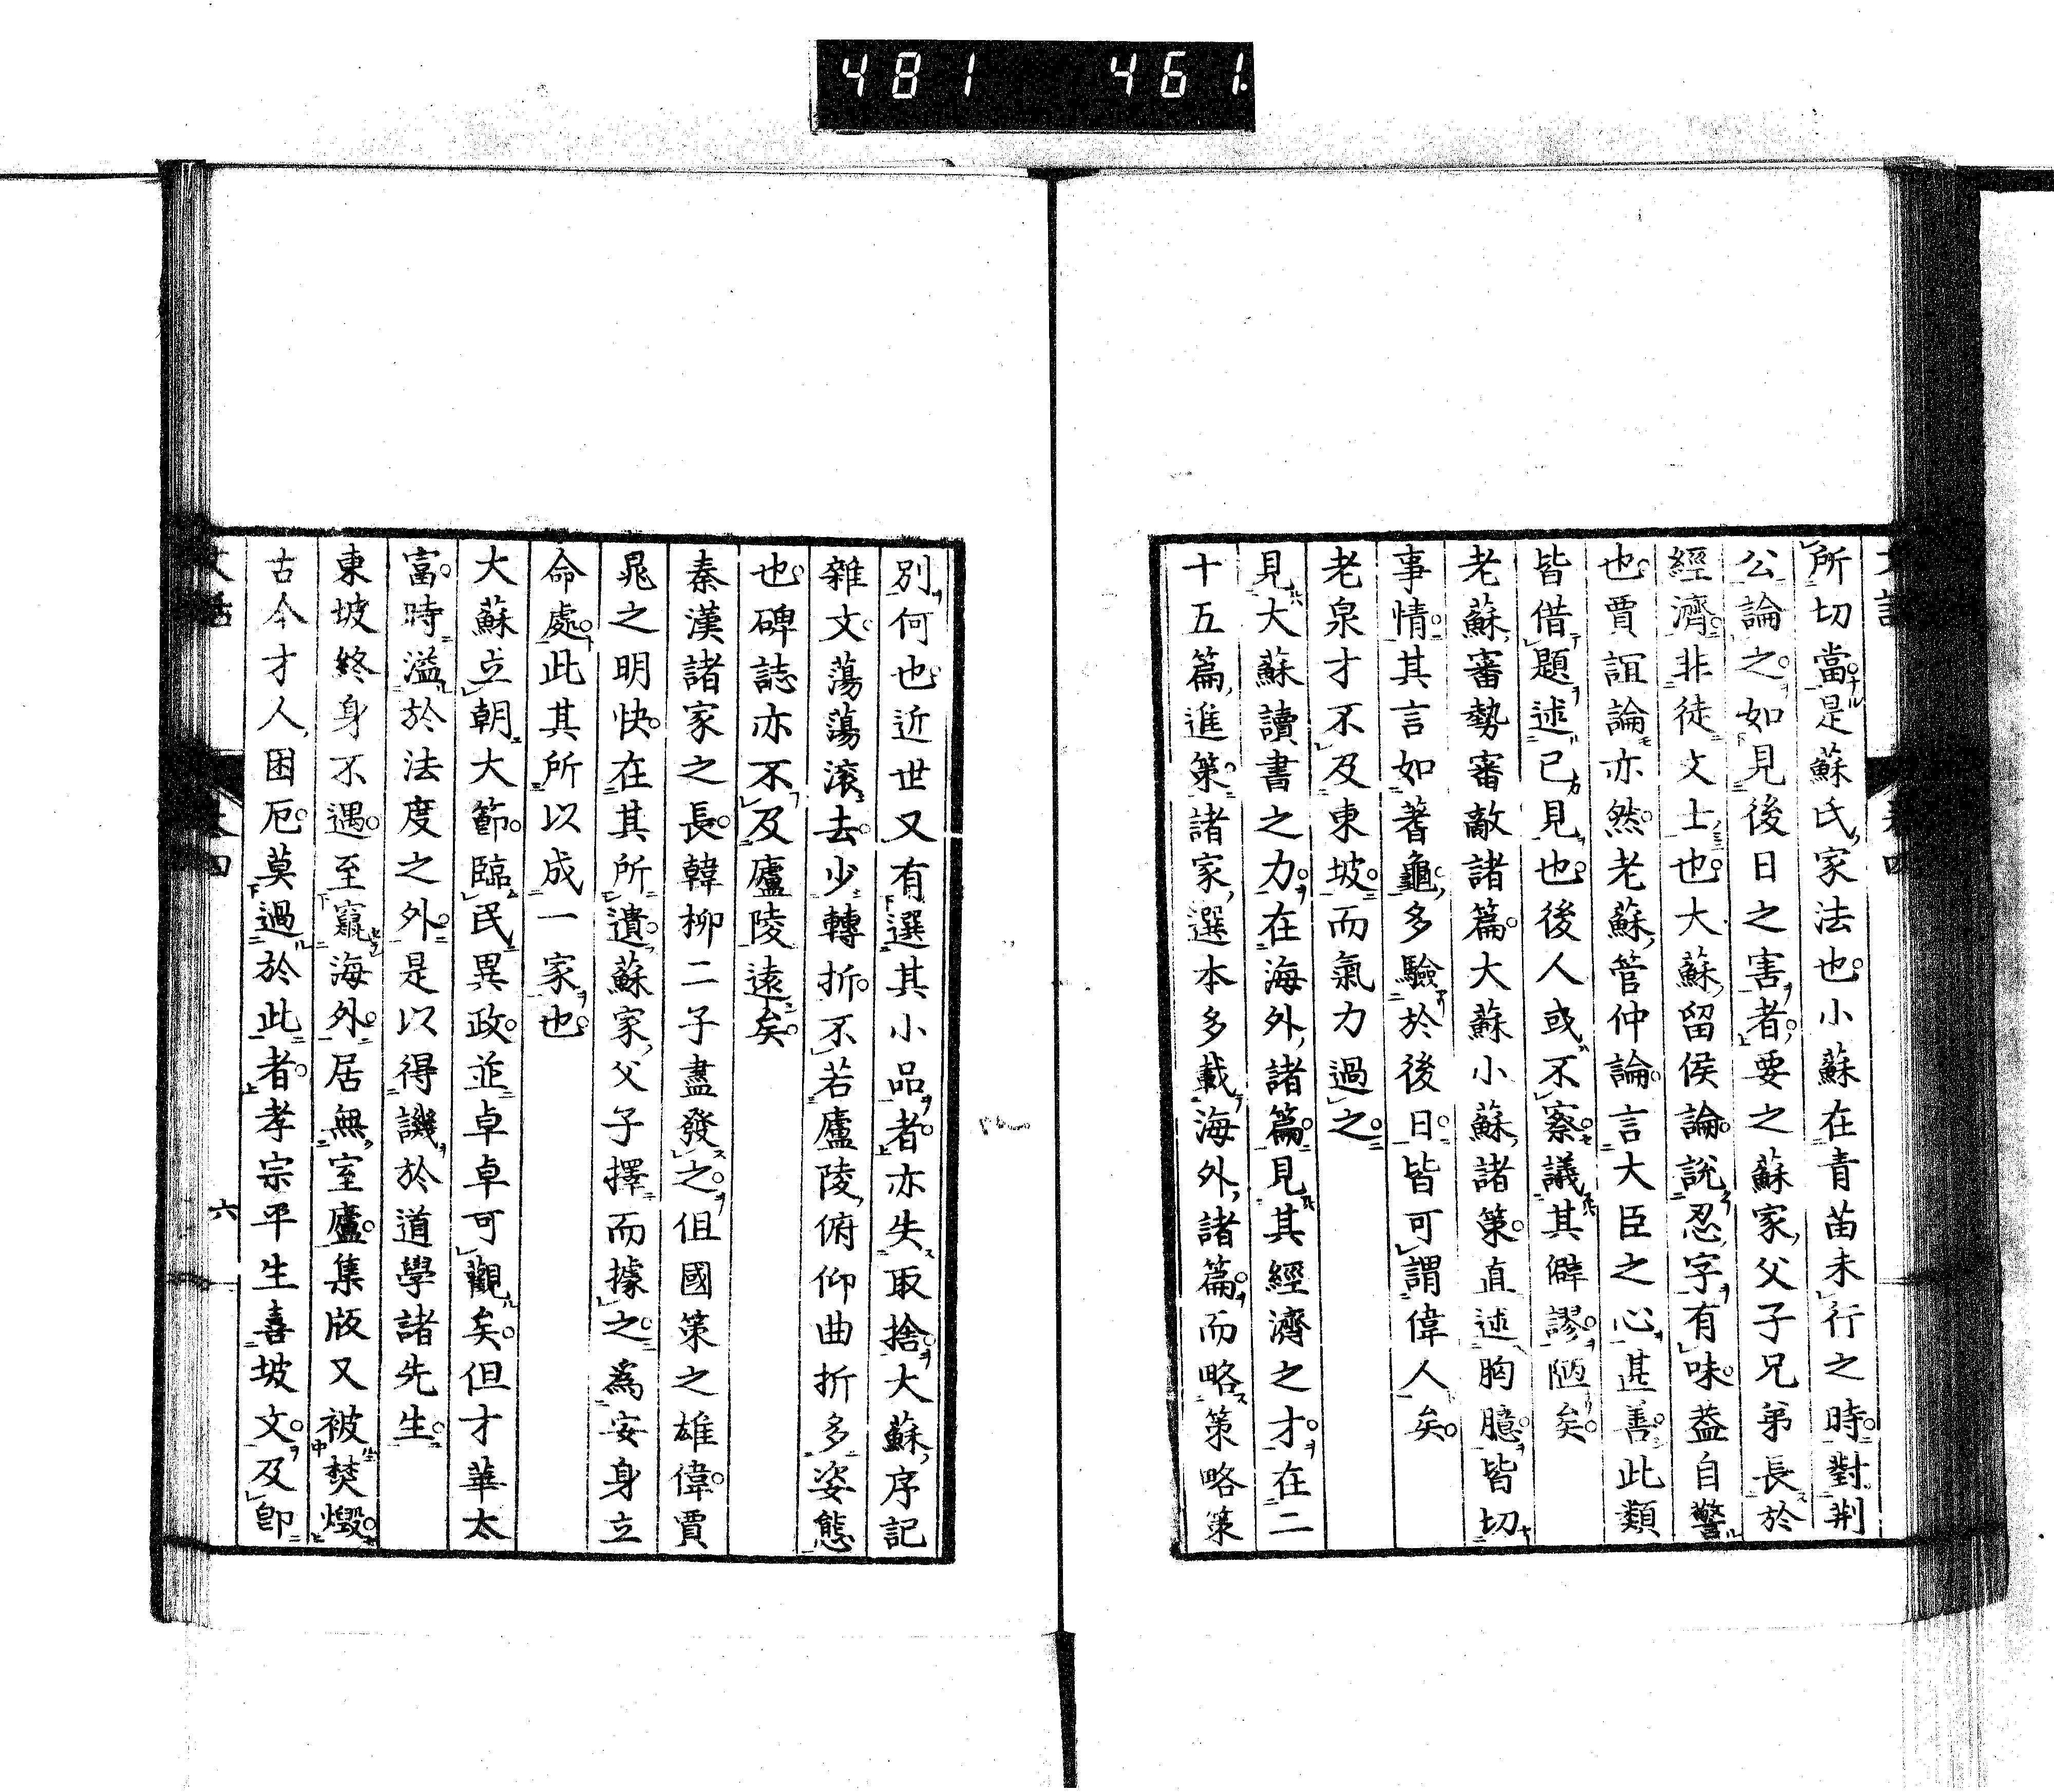 481 461.
所切當是蘇氏家法也小蘇在青苗未行之時對荆
公論之如見後日之害者要之蘇家父子兄弟長於
經濟非徒文士也大蘇留侯論說忍字有味葢自警
也賈誼論亦然老蘇管仲論言大臣之心甚善此類
皆借題述己見也後人或不察議其僻謬陋矣
老蘇審勢審敵諸篇大蘇小蘇諸策直述胸臆皆切
事情其言如蓍龜多驗於後日皆可謂偉人矣
老泉才不及東坡而氣力過之
見大蘇讀書之力在海外諸篇見其經濟之才在二
十五篇進策諸家選本多載海外諸篇而略策略策
別何也近世又有選其小品者亦失取捨大蘇序記
雜文蕩蕩滾去少轉折不若廬陵俯仰曲折多姿態
也碑誌亦不及廬陵遠矣
秦漢諸家之長韓柳二子盡發之但國策之雄偉賈
晁之明快在其所遺蘇家父子擇而據之為安身立
命處此其所以成一家也
大蘇立朝大節臨民異政並卓卓可觀矣但才華太
富時溢於法度之外是以得譏於道學諸先生
東坡終身不遇至竄海外居無室廬集版又被焚燬
古今才人困厄莫過於此者孝宗平生喜坡文及卽
六